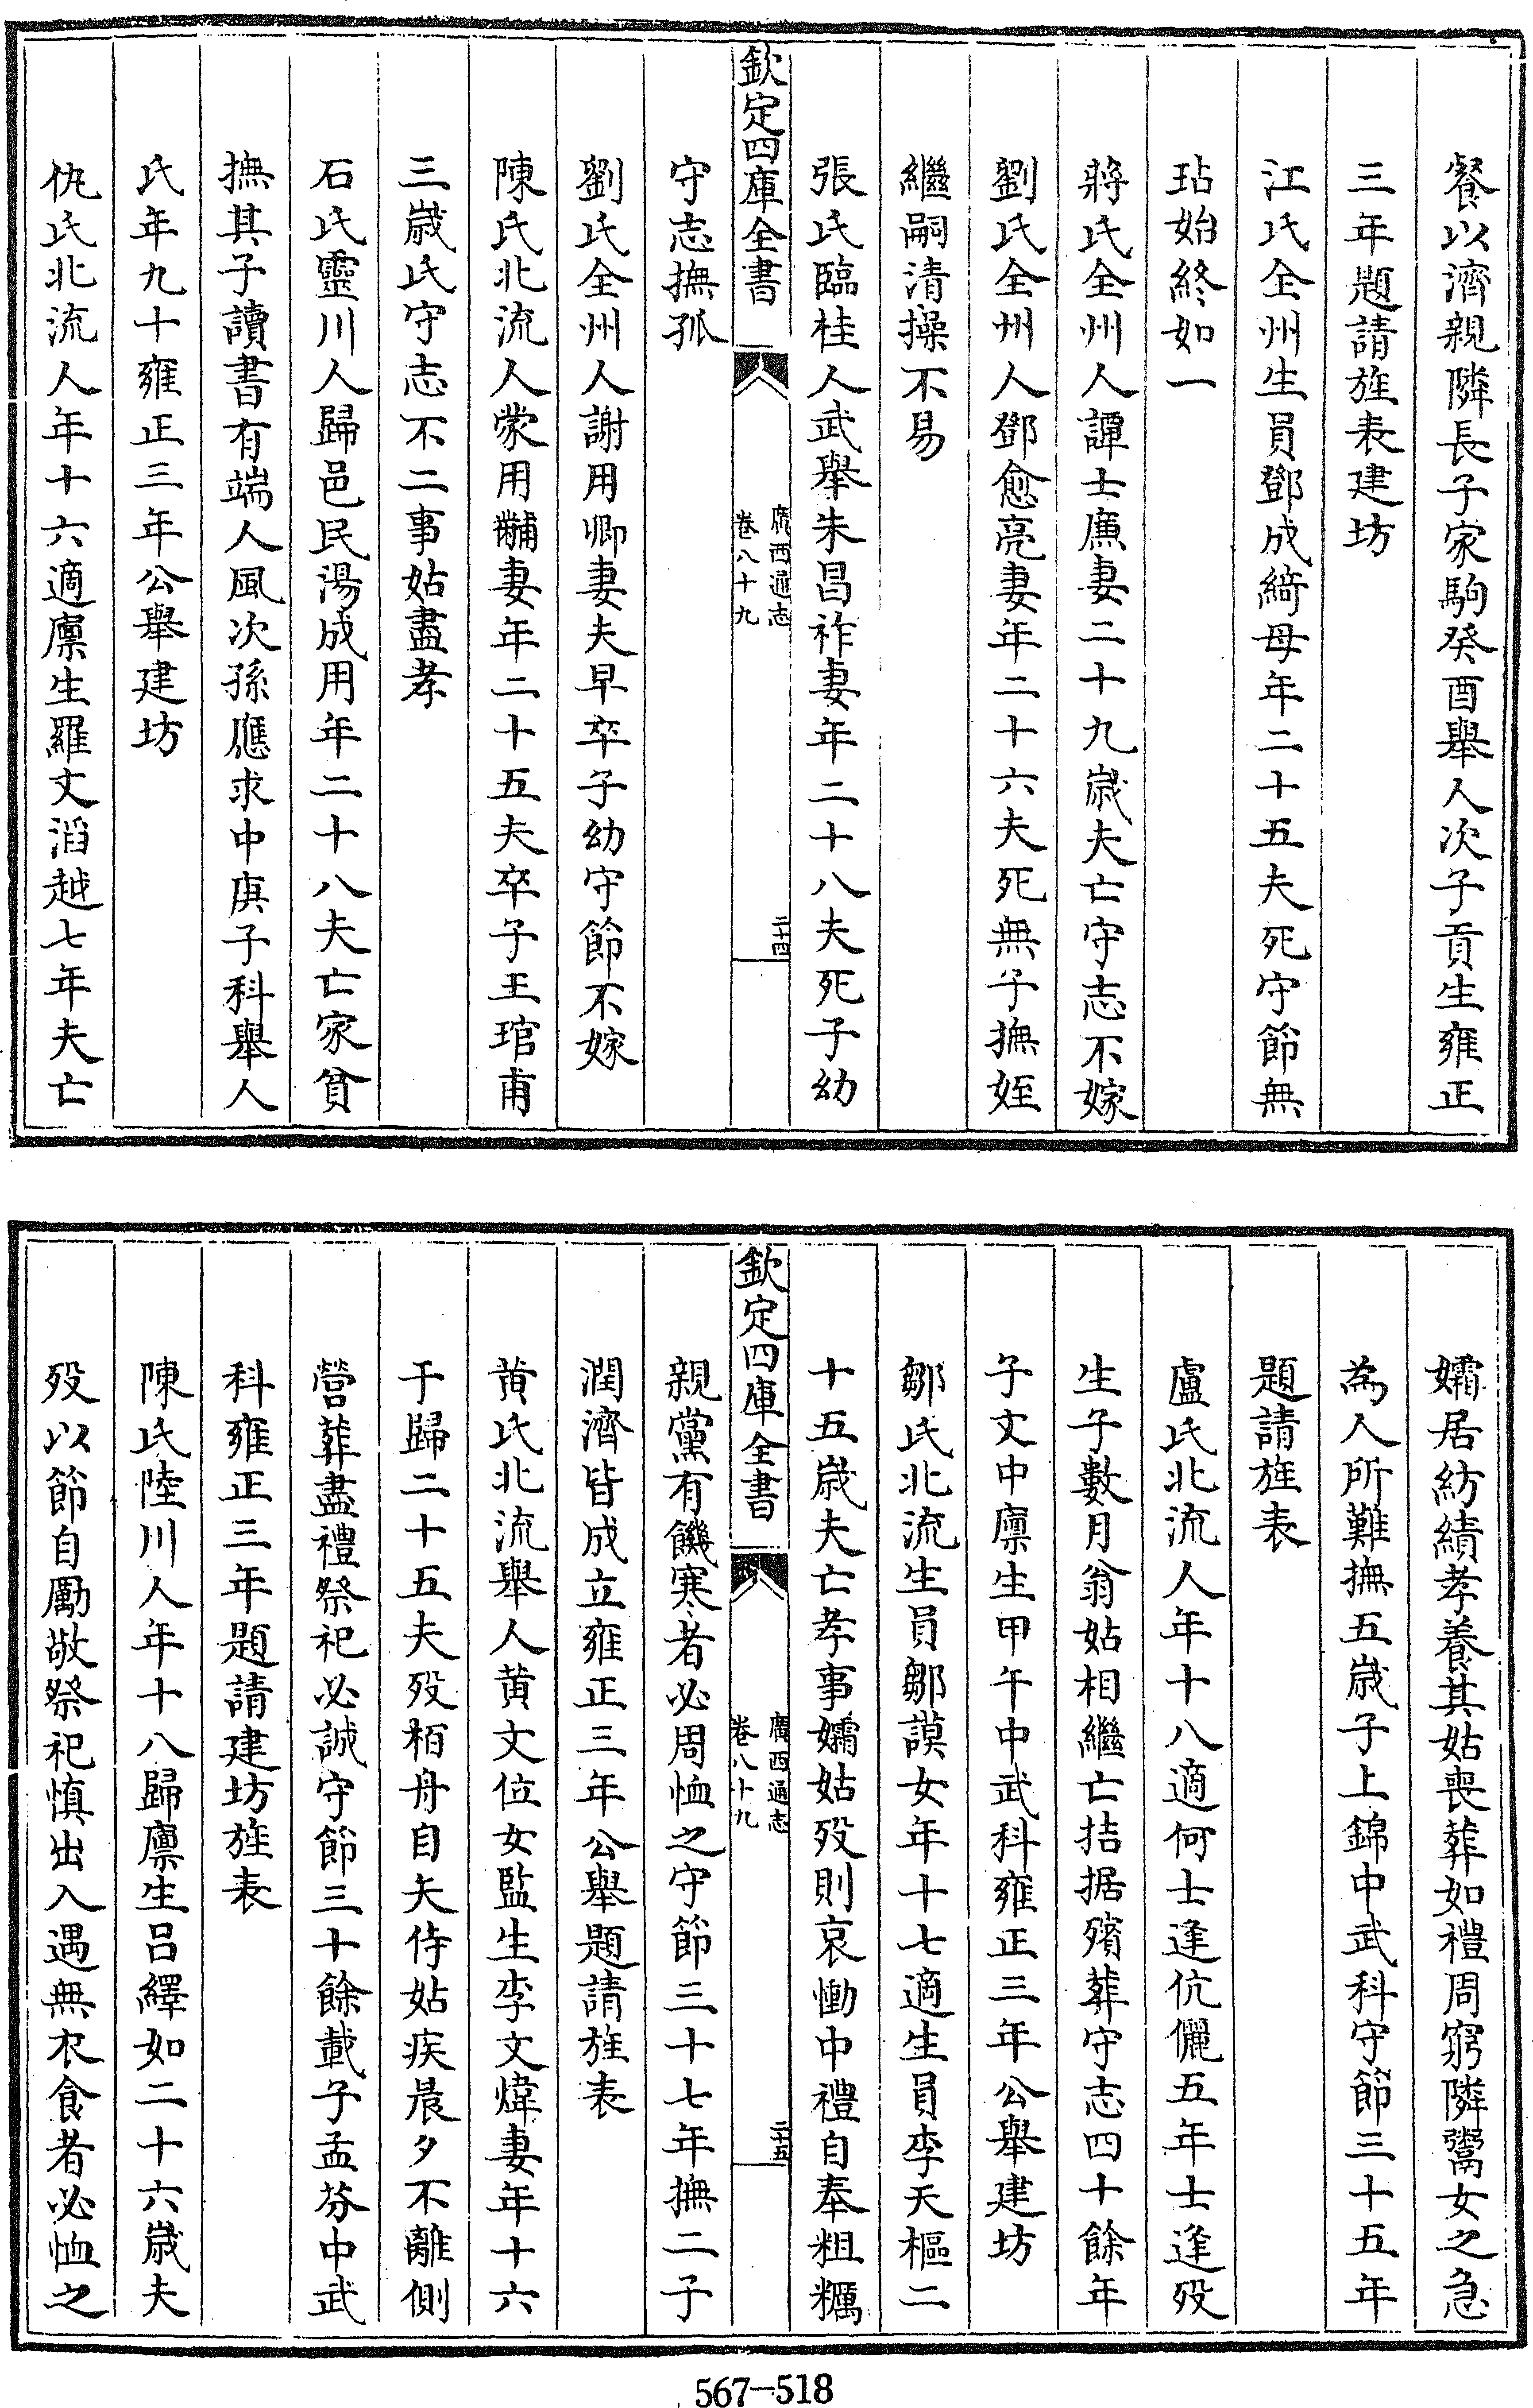 餐以濟親隣長子家駒癸酉舉人次子貢生雍正
三年題請旌表建坊
江氏全州生員鄧成綺母年二十五夫死守節無
玷始終如一
蔣氏全州人譚士廉妻二十九歲夫亡守志不嫁
劉氏全州人鄧愈亮妻年二十六夫死無子撫姪
繼嗣清操不易
張氏臨桂人武舉朱昌祚妻年二十八夫死子幼
欽定四庫全書
廣西通志
卷八十九
二十四
守志撫孤
劉氏全州人謝用卿妻夫早卒子幼守節不嫁
陳氏北流人蒙用黼妻年二十五夫卒子王琯甫
三歲氏守志不二事姑盡孝
石氏靈川人歸邑民湯成用年二十八夫亡家貧
撫其子讀書有端人風次孫應求中庚子科舉人
氏年九十雍正三年公舉建坊
仇氏北流人年十六適廩生羅文滔越七年夫亡
孀居紡績孝養其姑喪葬如禮周窮隣鬻女之急
為人所難撫五歲子上錦中武科守節三十五年
題請旌表
盧氏北流人年十八適何士逢伉儷五年士逢歿
生子數月翁姑相繼亡拮据殯葬守志四十餘年
子文中廩生甲午中武科雍正三年公舉建坊
鄒氏北流生員鄒謨女年十七適生員李天樞二
十五歲夫亡孝事孀姑歿則哀慟中禮自奉粗糲
欽定四庫全書
廣西通志
卷八十九
二十五
親黨有饑寒者必周恤之守節三十七年撫二子
潤濟皆成立雍正三年公舉題請旌表
黃氏北流舉人黃文位女監生李文煒妻年十六
于歸二十五夫歿栢舟自矢侍姑疾晨夕不離側
營葬盡禮祭祀必誠守節三十餘載子孟芬中武
科雍正三年題請建坊旌表
陳氏陸川人年十八歸廩生呂繹如二十六歲夫
歿以節自勵敬祭祀慎出入遇無衣食者必恤之
567—518